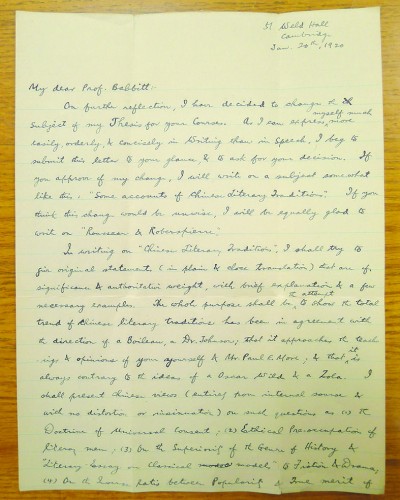 51 Weld Hall
Cambridge
Jan. 20th, 1920
My dear Prof. Babbitt:
On further reflection, I have decided to change the
subject of my Thesis for your Course. As I can express myself much more
easily, orderly, & concisely in Writing than in Speech, I beg to
submit this letter to your glance, & to ask for your decision. If
you approve of my change, I will write on a subject somewhat
like this: "Some accounts of Chinese Literary Traditions". If you
think this change would be unwise, I will be equally glad to
write on "Rousseau & Robespierre."
In writing on "Chinese Literary Tradition", I shall try to
give original statement (in plain & close translation) that are of
significance & authoritative weight, with brief explanation & a few
necessary examples. The whole purpose shall be the attempt to show the total
trend of Chinese literary traditions has been in agreement with
the direction of a Boileau, a Dr. Johnson; that it approaches the teach-
ings & opinions of your yourself & Mr. Paul E. More; & that it is
always contrary to the ideas of a Oscar Wild & a Zola. I
shall present Chinese views (entirely from internal source &
with no distortion or insinuation) on such questions as (1) the
Doctrine of Universal Consent; (2) Ethical Preoccupation of
literary men; (3) On the Superiority of the Genre of History &
"Literary Essay on Classical model" to Fiction & Drama;
(4) On the Ratio between Popularity & True merit of